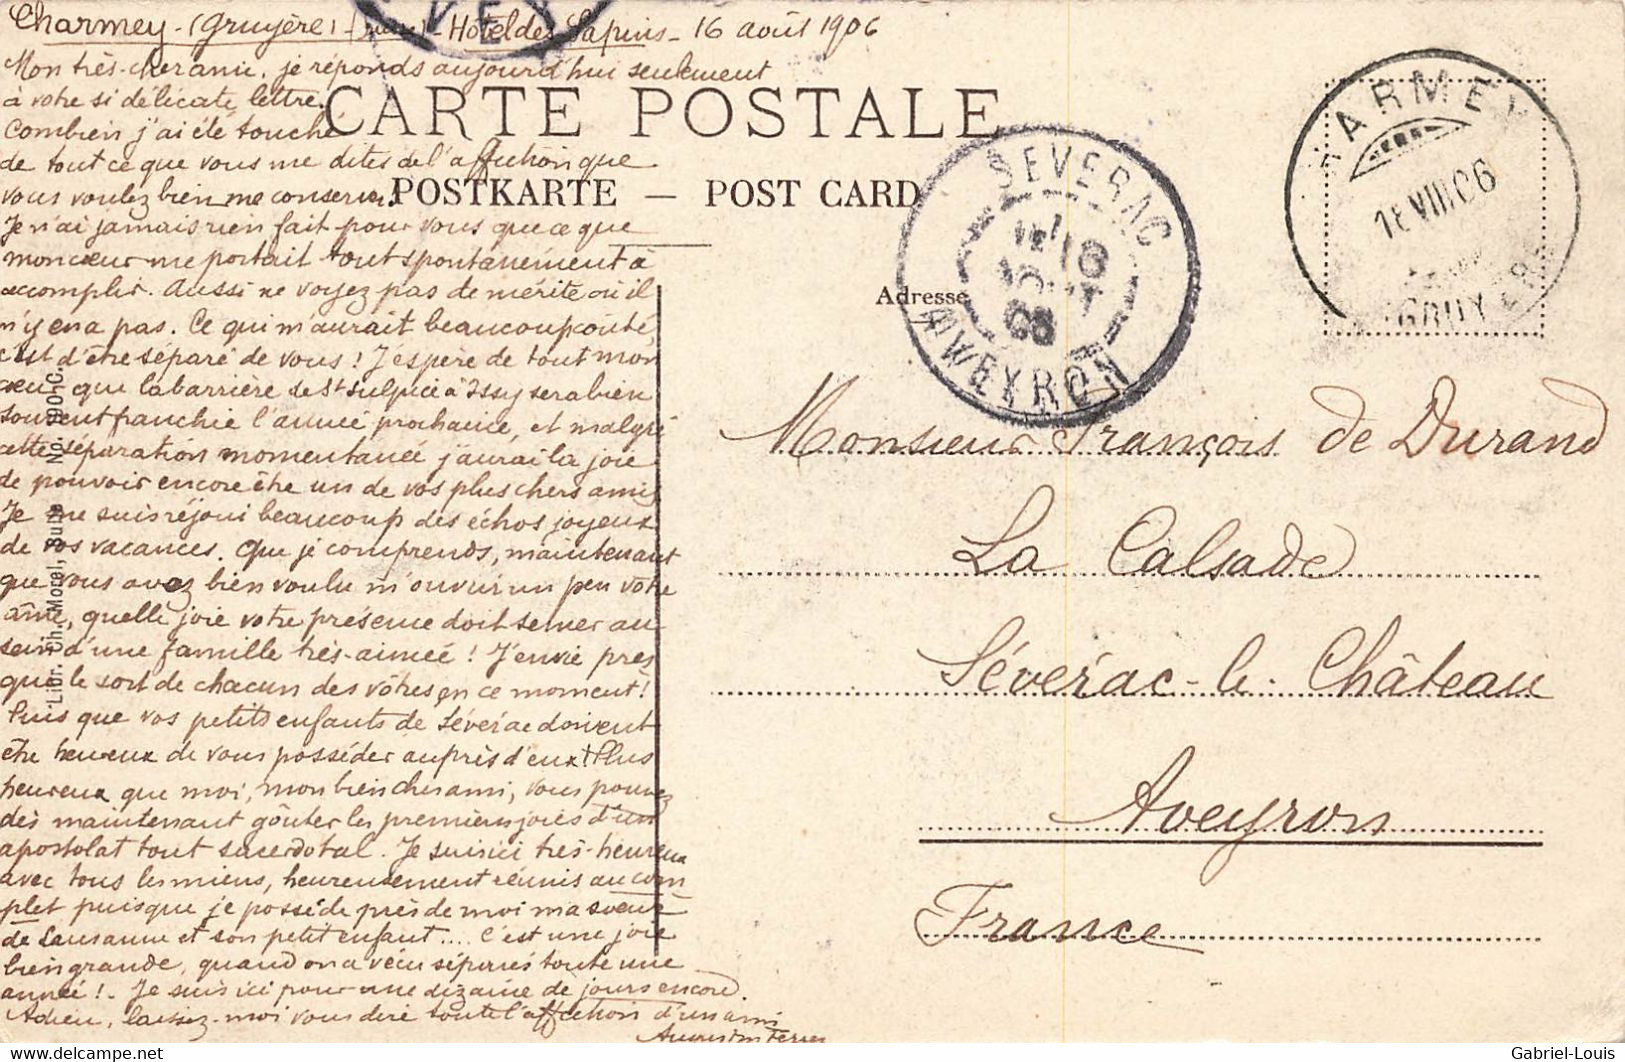 Charmey - (Gruyère) - - Hôtel des Sapins - 16 août 1906
VEY
Mon très-cher ami, je réponds aujourd'hui seulement
à votre si délicate lettre.
CARTE POSTALE
Combien j'ai été touché
de tout ce que vous me dites de l'affection que
vous voulez bien me conserver.
POSTKARTE — POST CARD
Je n'ai jamais rien fait pour vous que ce que
mon cœur me portait tout spontanément à
accomplir. Aussi ne voyez pas de mérite où il
n'y en a pas. Ce qui m'aurait beaucoup coûté,
c'est d'être séparé de vous! J'espère de tout mon
cœur que la barrière de St Sulpice à Issy sera bien
souvent franchie l'année prochaine, et malgré
cette séparation momentanée j'aurai la joie
de pouvoir encore être un de vos plus chers amis
Je me suis réjoui beaucoup des échos joyeux
de vos vacances. Que je comprends, maintenant
que vous avez bien voulu m'ouvrir un peu votre
âme, quelle joie votre présence doit semer au
sein d'une famille très-aimée! J'envie près
que le sort de chacun des vôtres en ce moment!
Puis que vos petits enfants de Séverac doivent
être heureux de vous posséder auprès d'eux! Plus
heureux que moi, mon bien cher ami, vous pouvez
dès maintenant goûter les premières joies d'un
apostolat tout sacerdotal. Je suis ici très-heureux
avec tous les miens, heureusement réunis au com
plet puisque je possède près de moi ma sœur
de Lausanne et son petit enfant.... C'est une joie
bien grande, quand on a vécu séparés toute une
année! - Je suis ici pour une dizaine de jours encore.
Adieu, laissez-moi vous dire toute l'affection d'un ami
Libr. Ch. Morel, No. 190 C.
CHARMEY
16 VIII 06
(GRUYÈRE)
SEVERAC
16
AVEYRON
Adresse
Monsieur François de Durand
La Calsade
Séverac-le-Château
Aveyron
France
Gabriel-Louis